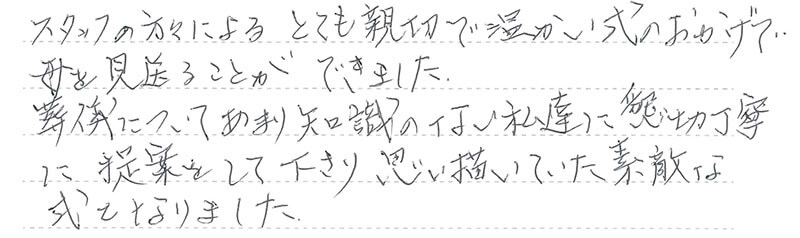 スタッフの方々による とても親切で温かい式のおかげで
母を見送ることが できました.
葬儀についてあまり知識のない私達に 懇切丁寧
に 提案をして下さり 思い描いていた素敵な
式となりました.